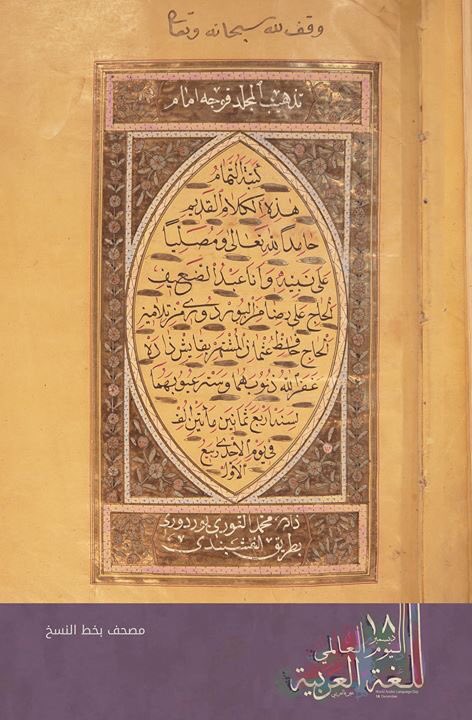 وقف لله سبحانه وتعالى
تذهيب المجلد فوجه امام
كتبة التمام
هذه الكلام القديم
حامدا لله تعالى ومصليا
على نبيه وانا عبد الضعيف
الحاج على رضا من البوردورى من تلاميذ
الحاج حافظ عثمان المشتهر بقايش ذاده
غفر الله ذنوبهما وستر عيوبهما
لسنة اربع ثمانين مأتين الف
فى يوم الأحدى ربيع
الأول
محمد النورى بوردورى
بطريق النقشبندى
مصحف بخط النسخ
١٨ ديسمبر
اليوم العالمي
للغة العربية
World Arabic Language Day
18 December